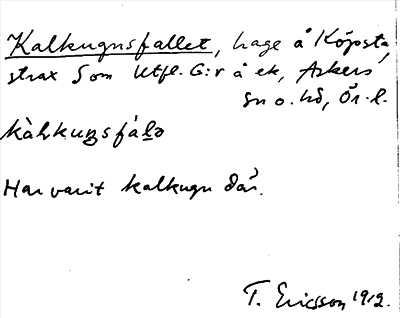 Kalkugnsfallet, hage å Köpsta,
strax S om Utfl. G:r å ek, Askers
sn o. hd, Ör. l.
kàlkuŋsfálə
Har varit kalkugn där.
T. Ericsson 1912.